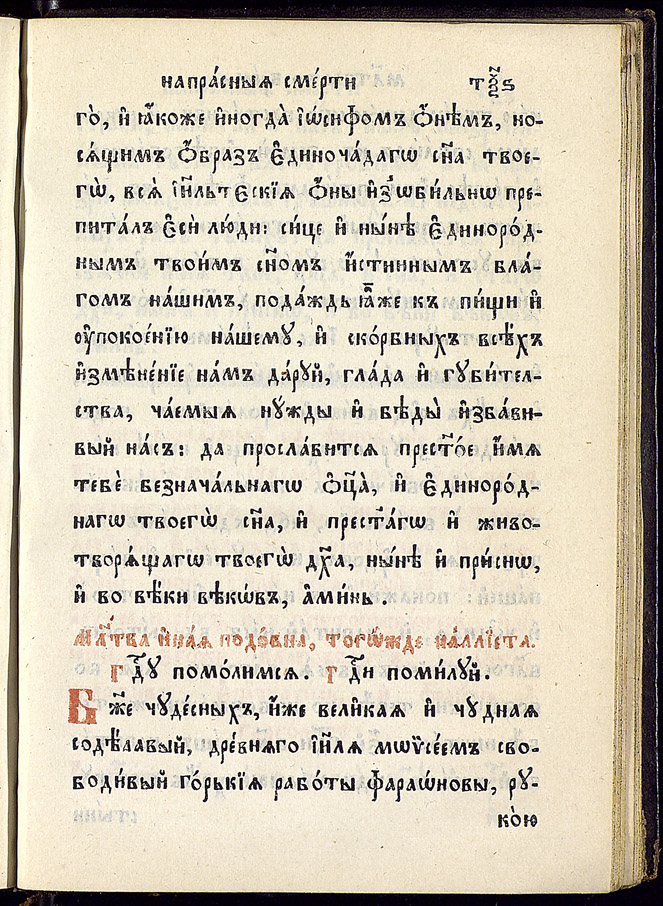 напра́сныѧ сме́рти т҃ч҃ѕ
го̀, и҆ ꙗ҆́коже и҆ногда̀ і҆ѡ́сифомъ ѻ҆́нѣмъ, но-
сѧ́щимъ ѻ҆́бразъ є҆диноча́дагѡ сн҃а твое-
гѡ̀, всѧ̑ і҆и҃льтескїѧ ѻ҆́ны и҆з̾ѡби́льнѡ пре-
пита́лъ є҆сѝ лю́ди: си́це и҆ ны́нѣ є҆диноро́д-
нымъ твои́мъ сн҃омъ и҆́стиннымъ бла-
го́мъ на́шимъ, пода́ждь ꙗ҆̀же къ пи́щи и҆
ᲂу҆покое́нїю на́шемꙋ, и҆ ско́рбныхъ всѣ́хъ
и҆змѣне́нїе на́мъ да́рꙋй, гла́да и҆ гꙋби́тел-
ства, ча́емыѧ нꙋ́жды и҆ бѣды̀ и҆зба́ви-
вый на́съ: да просла́витсѧ прест҃о́е и҆́мѧ
тебѐ безнача́льнагѡ ѻ҆ц҃а̀, и҆ є҆диноро́д-
нагѡ твоегѡ̀ сн҃а, и҆ прест҃а́гѡ и҆ живо-
творѧ́щагѡ твоегѡ̀ дх҃а, ны́нѣ и҆ при́снѡ,
и҆ во вѣ́ки вѣкѡ́въ, а҆ми́нь.
мл҃тва и҆на́ѧ подо́бна, тогѡ́жде калли́ста.
гдⷭ҇ꙋ помо́лимсѧ. гдⷭ҇и поми́лꙋй.
Бж҃е чꙋде́сныхъ, и҆́же вели́каѧ и҆ чꙋ́днаѧ
содѣ́лавый, дре́внѧго і҆и҃лѧ мѡѷсе́емъ сво-
боди́вый го́рькїѧ рабо́ты фараѡ́новы, рꙋ-
ко́ю